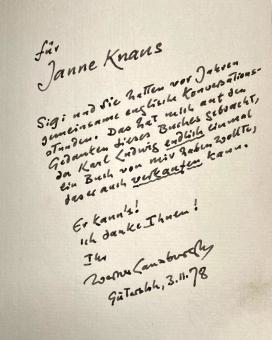 für
Janne Knaus
Sigi und Sie hatten vor Jahren
gemeinsame englische Konversations-
stunden. Das hat mich auf den
Gedanken dieses Buches gebracht,
da Karl Ludwig endlich einmal
ein Buch von mir haben wollte,
das er auch verkaufen kann.
Er kann's!
Ich danke Ihnen!
Ihr
Werner
Gütersloh, 3.11.78